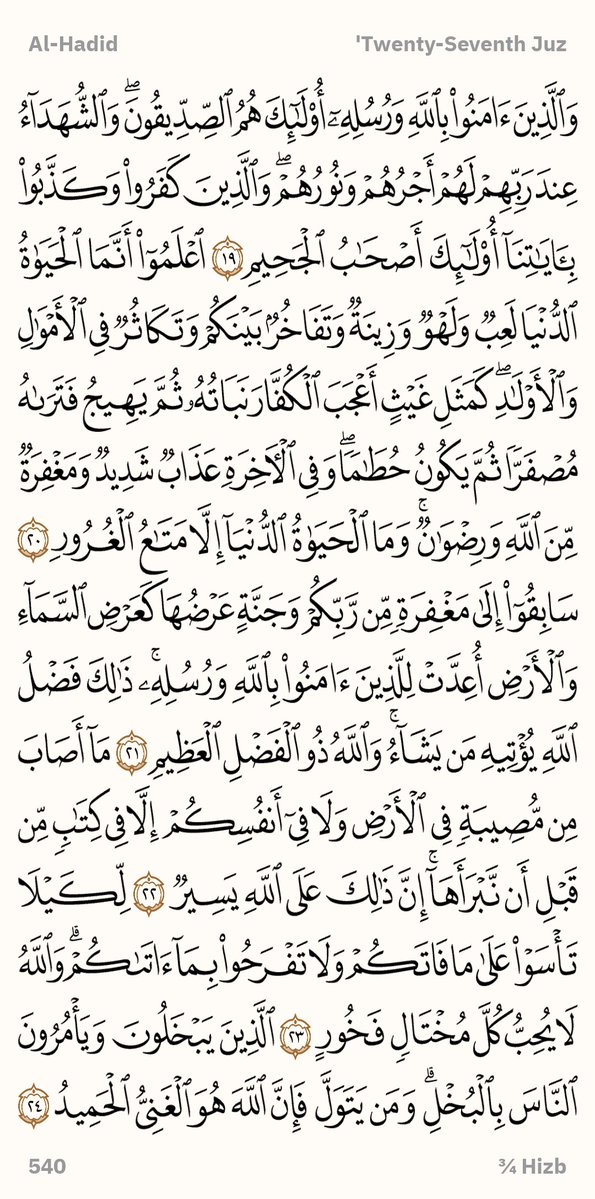 Al-Hadid
'Twenty-Seventh Juz
وَٱلَّذِينَ ءَامَنُوا۟ بِٱللَّهِ وَرُسُلِهِۦٓ أُو۟لَـٰٓئِكَ هُمُ ٱلصِّدِّيقُونَ ۖ وَٱلشُّهَدَآءُ
عِندَ رَبِّهِمْ لَهُمْ أَجْرُهُمْ وَنُورُهُمْ ۖ وَٱلَّذِينَ كَفَرُوا۟ وَكَذَّبُوا۟
بِـَٔايَـٰتِنَآ أُو۟لَـٰٓئِكَ أَصْحَـٰبُ ٱلْجَحِيمِ ١٩ ٱعْلَمُوٓا۟ أَنَّمَا ٱلْحَيَوٰةُ
ٱلدُّنْيَا لَعِبٌ وَلَهْوٌ وَزِينَةٌ وَتَفَاخُرٌۢ بَيْنَكُمْ وَتَكَاثُرٌ فِى ٱلْأَمْوَٰلِ
وَٱلْأَوْلَـٰدِ ۖ كَمَثَلِ غَيْثٍ أَعْجَبَ ٱلْكُفَّارَ نَبَاتُهُۥ ثُمَّ يَهِيجُ فَتَرَىٰهُ
مُصْفَرًّا ثُمَّ يَكُونُ حُطَـٰمًا ۖ وَفِى ٱلْـَٔاخِرَةِ عَذَابٌ شَدِيدٌ وَمَغْفِرَةٌ
مِّنَ ٱللَّهِ وَرِضْوَٰنٌ ۚ وَمَا ٱلْحَيَوٰةُ ٱلدُّنْيَآ إِلَّا مَتَـٰعُ ٱلْغُرُورِ ٢٠
سَابِقُوٓا۟ إِلَىٰ مَغْفِرَةٍ مِّن رَّبِّكُمْ وَجَنَّةٍ عَرْضُهَا كَعَرْضِ ٱلسَّمَآءِ
وَٱلْأَرْضِ أُعِدَّتْ لِلَّذِينَ ءَامَنُوا۟ بِٱللَّهِ وَرُسُلِهِۦ ۚ ذَٰلِكَ فَضْلُ
ٱللَّهِ يُؤْتِيهِ مَن يَشَآءُ ۚ وَٱللَّهُ ذُو ٱلْفَضْلِ ٱلْعَظِيمِ ٢١ مَآ أَصَابَ
مِن مُّصِيبَةٍ فِى ٱلْأَرْضِ وَلَا فِىٓ أَنفُسِكُمْ إِلَّا فِى كِتَـٰبٍ مِّن
قَبْلِ أَن نَّبْرَأَهَآ ۚ إِنَّ ذَٰلِكَ عَلَى ٱللَّهِ يَسِيرٌ ٢٢ لِّكَيْلَا
تَأْسَوْا۟ عَلَىٰ مَا فَاتَكُمْ وَلَا تَفْرَحُوا۟ بِمَآ ءَاتَىٰكُمْ ۗ وَٱللَّهُ
لَا يُحِبُّ كُلَّ مُخْتَالٍ فَخُورٍ ٢٣ ٱلَّذِينَ يَبْخَلُونَ وَيَأْمُرُونَ
ٱلنَّاسَ بِٱلْبُخْلِ ۗ وَمَن يَتَوَلَّ فَإِنَّ ٱللَّهَ هُوَ ٱلْغَنِىُّ ٱلْحَمِيدُ ٢٤
540
¾ Hizb